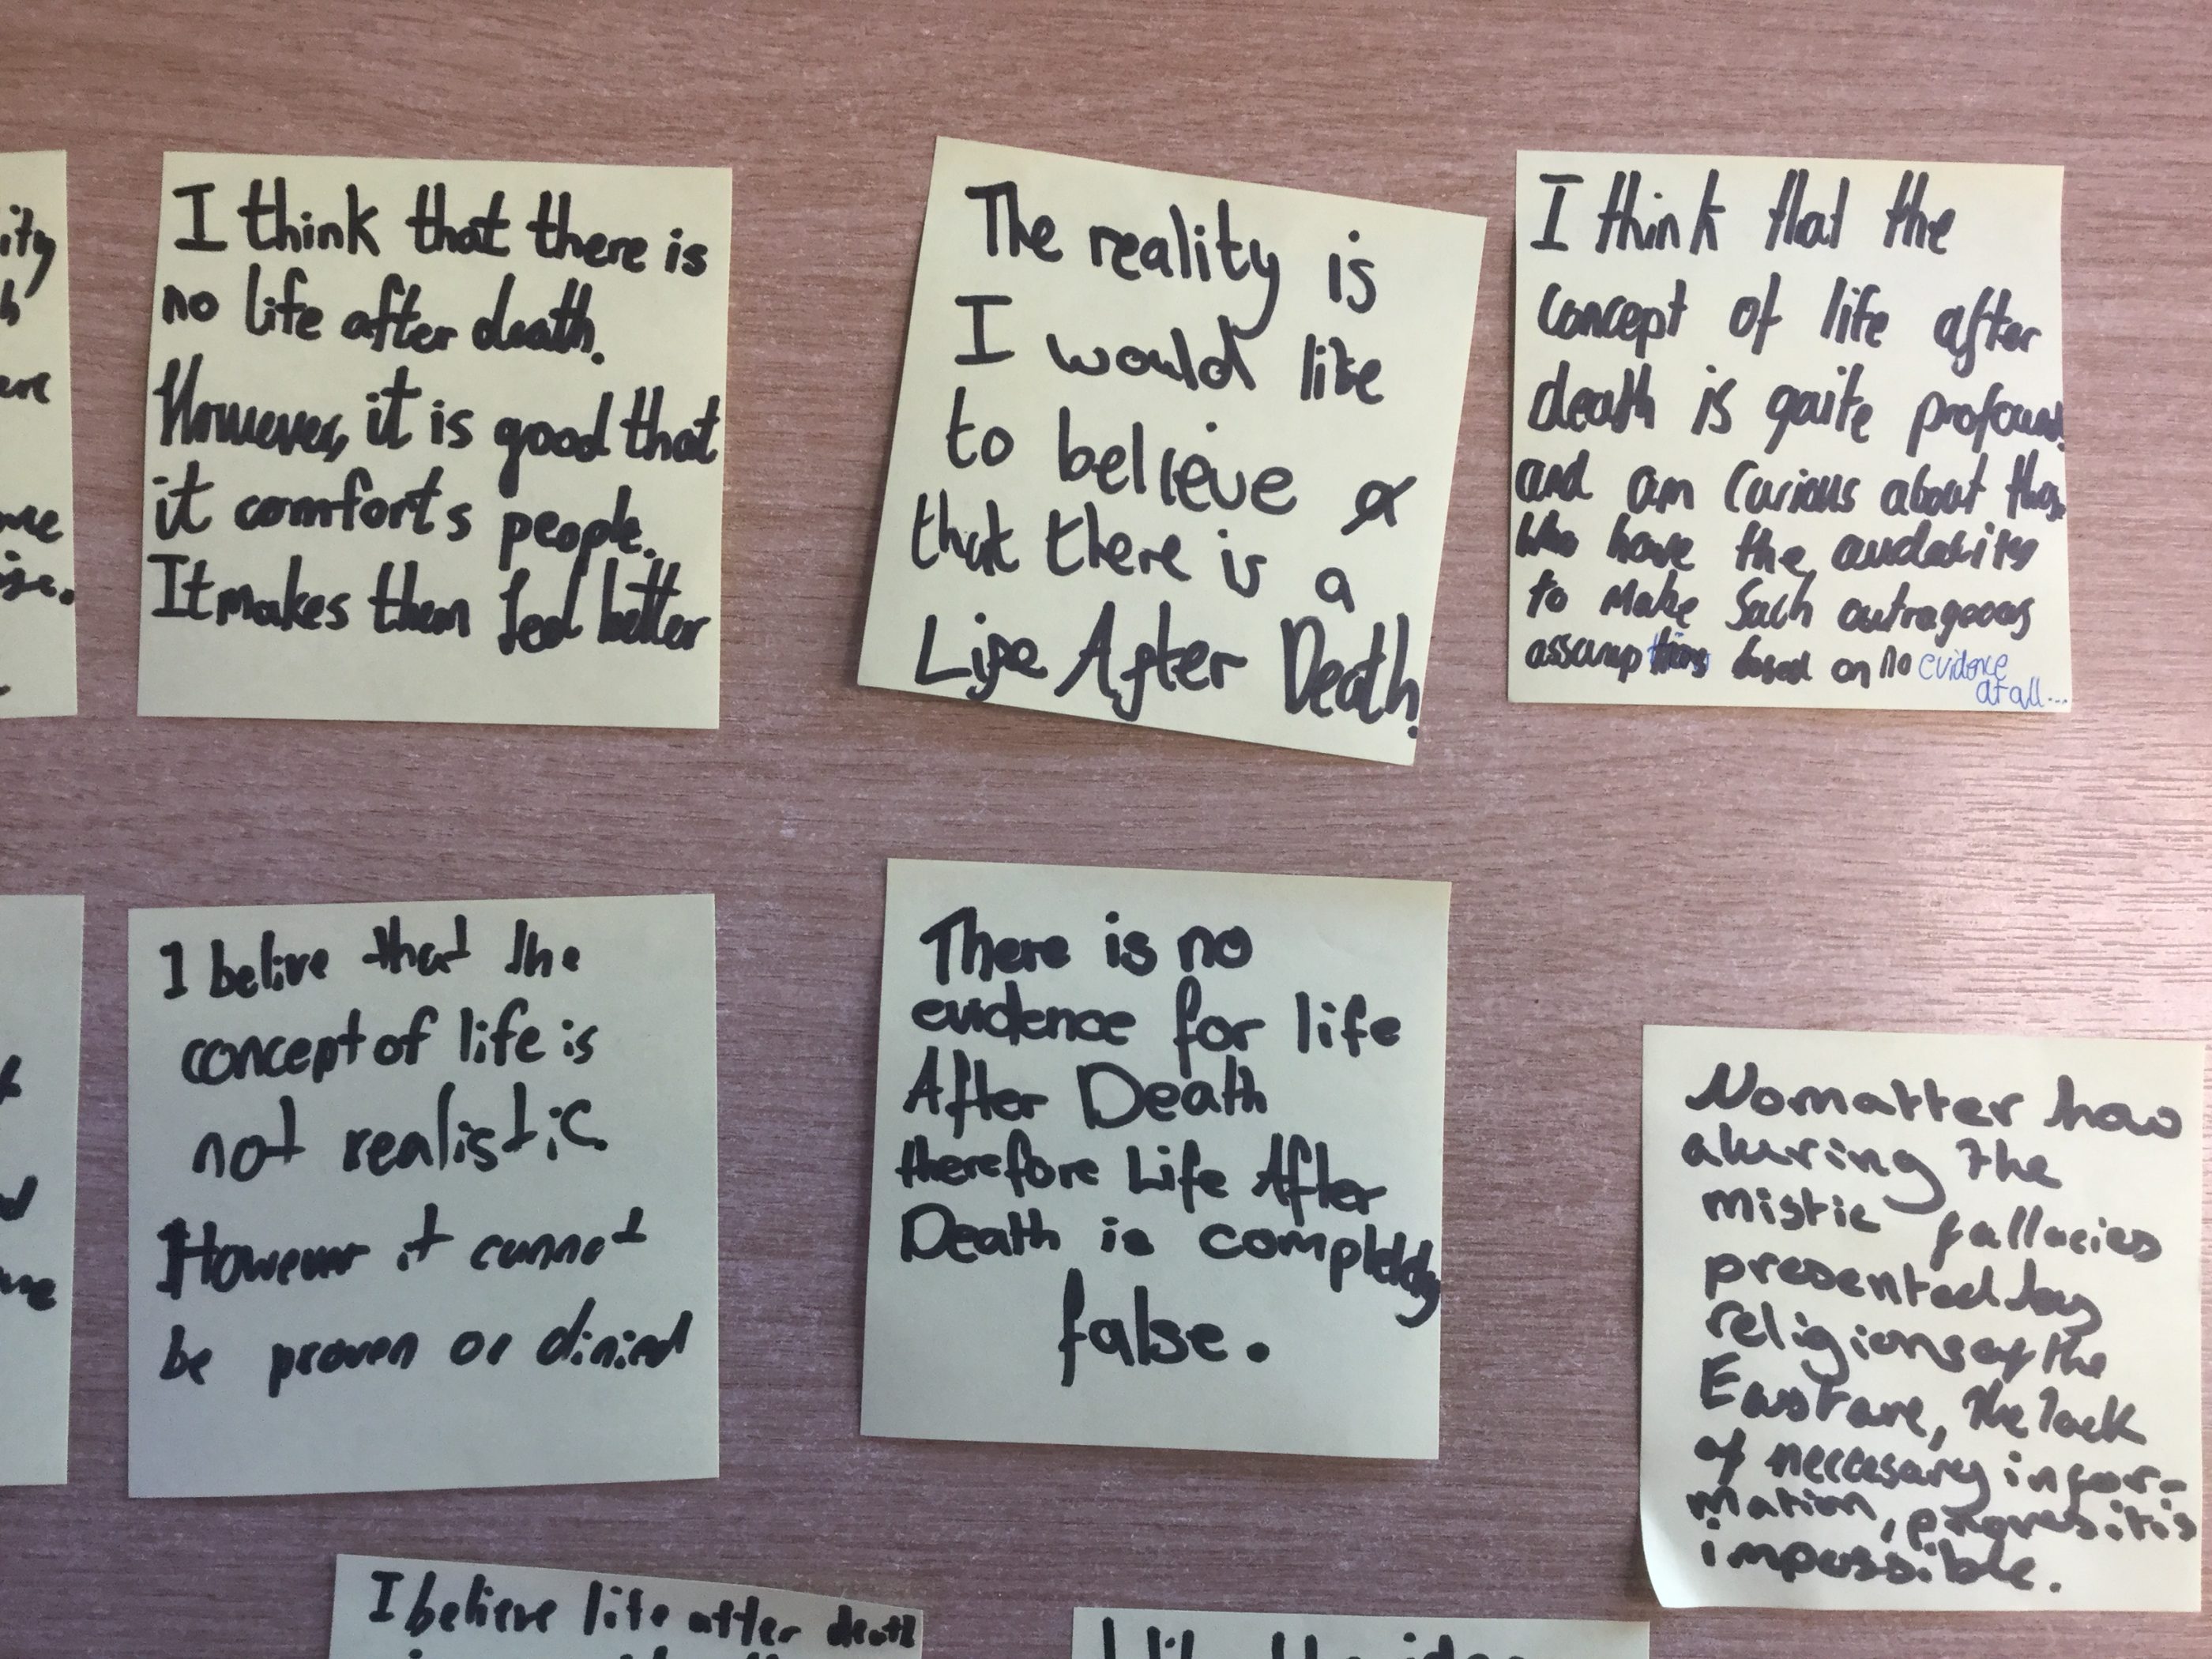 ity
I think that there is
no life after death.
However, it is good that
it comforts people.
It makes them feel better
The reality is
I would like
to believe
that there is a
Life After Death.
I think that the
concept of life after
death is quite profound
and am curious about those
who have the audasity
to make such outrageous
assumptions based on no evidence
at all...
I belive that the
concept of life is
not realistic.
However it cannot
be proven or dinied
There is no
evidence for life
After Death
therefore Life After
Death is completely
false.
No matter how
aluring the
mistic fallacies
presented by
religions of the
East are, the lack
of neccesary infor-
mation, proves it is
impossible.
I believe life after death